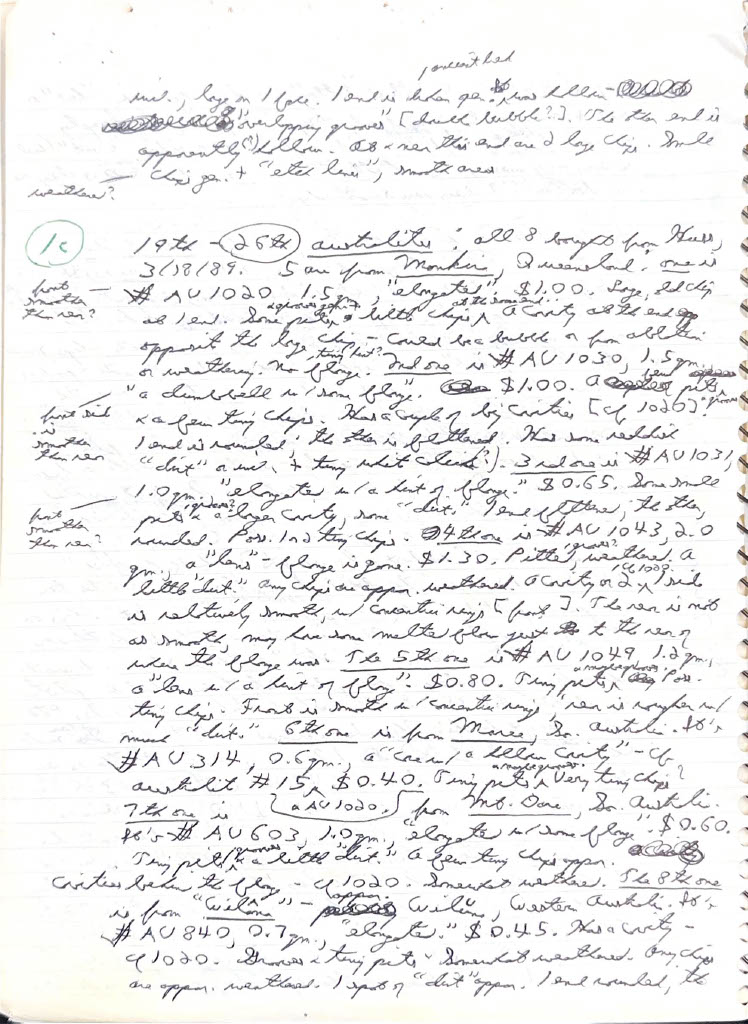 , large on 1 face. 1 end is broken open. It was hollow -
"overlapping grooves" [double bubble?]. The other end is
apparently (?) hollow. & near this end are 2 large chips. Small
chips gen. + "etch lines", smooth area
weathered?
1c
19th - 26th australites: all 8 bought from Huss,
3/18/89. 5 are from Monkira, Queensland. one is
front smoother than rear?
# AU 1020, 1.5 gm, "elongated", $1.00. Large, old chip
at 1 end. Some pits & little chips. A cavity at the end
opposite the large chip - could be a bubble or from ablation
or weathering. No flange. 2nd one is # AU 1030, 1.5 gm.,
"a dumbbell w/ some flange". $1.00. A few pits
front side is smoother than rear
& a few tiny chips. Has a couple of big cavities [cf 1020].
1 end is rounded; the other is flattened. Has some reddish
"dirt" & tiny white 3rd one is # AU 1031,
1.0 gm. "elongate w/ a hint of flange." $0.65. Some small
front smoother than rear?
pits & a larger cavity, some "dirt." 1 end flattened, the other
rounded. Poss. 1 or 2 tiny chips. 4th one is # AU 1043, 2.0
gm., a "lens" - flange is gone. $1.30. Pitted, weathered. A
little "dirt." Any chips are appar. weathered. A cavity or 2. 1 side
is relatively smooth, w/ concentric rings [front]. The rear is not
as smooth, may have some melted flow just to the rear of
where the flange was. The 5th one is # AU 1049, 1.2 gm.,
a "lens w/ a hint of flange". $0.80. Tiny pits, maybe grooves. Poss.
tiny chips. Front is smooth w/ concentric rings; rear is rougher w/
much "dirt." 6th one is from Maree, So. Australia. It's
# AU 314, 0.6 gm., a "core w/ a hollow cavity" - cf
australite # 15 & AU 1020. $0.40. Tiny pits, maybe grooves. Very tiny chips?
7th one is from Mt. Dare, So. Australia.
It's # AU 603, 1.0 gm., "elongate w/ some flange". $0.60.
Tiny pits, grooves & a little "dirt." A few tiny chips appar.
Cavities behind the flange - cf 1020. Somewhat weathered. The 8th one
is from "Wiluna" - appar. Wiluna, Western Australia. It's
# AU 840, 0.7 gm., "elongate." $0.45. Has a cavity -
cf 1020. Grooves & tiny pits. Somewhat weathered. Any chips
are appar. weathered. 1 spot of "dirt" appar. 1 end rounded, the